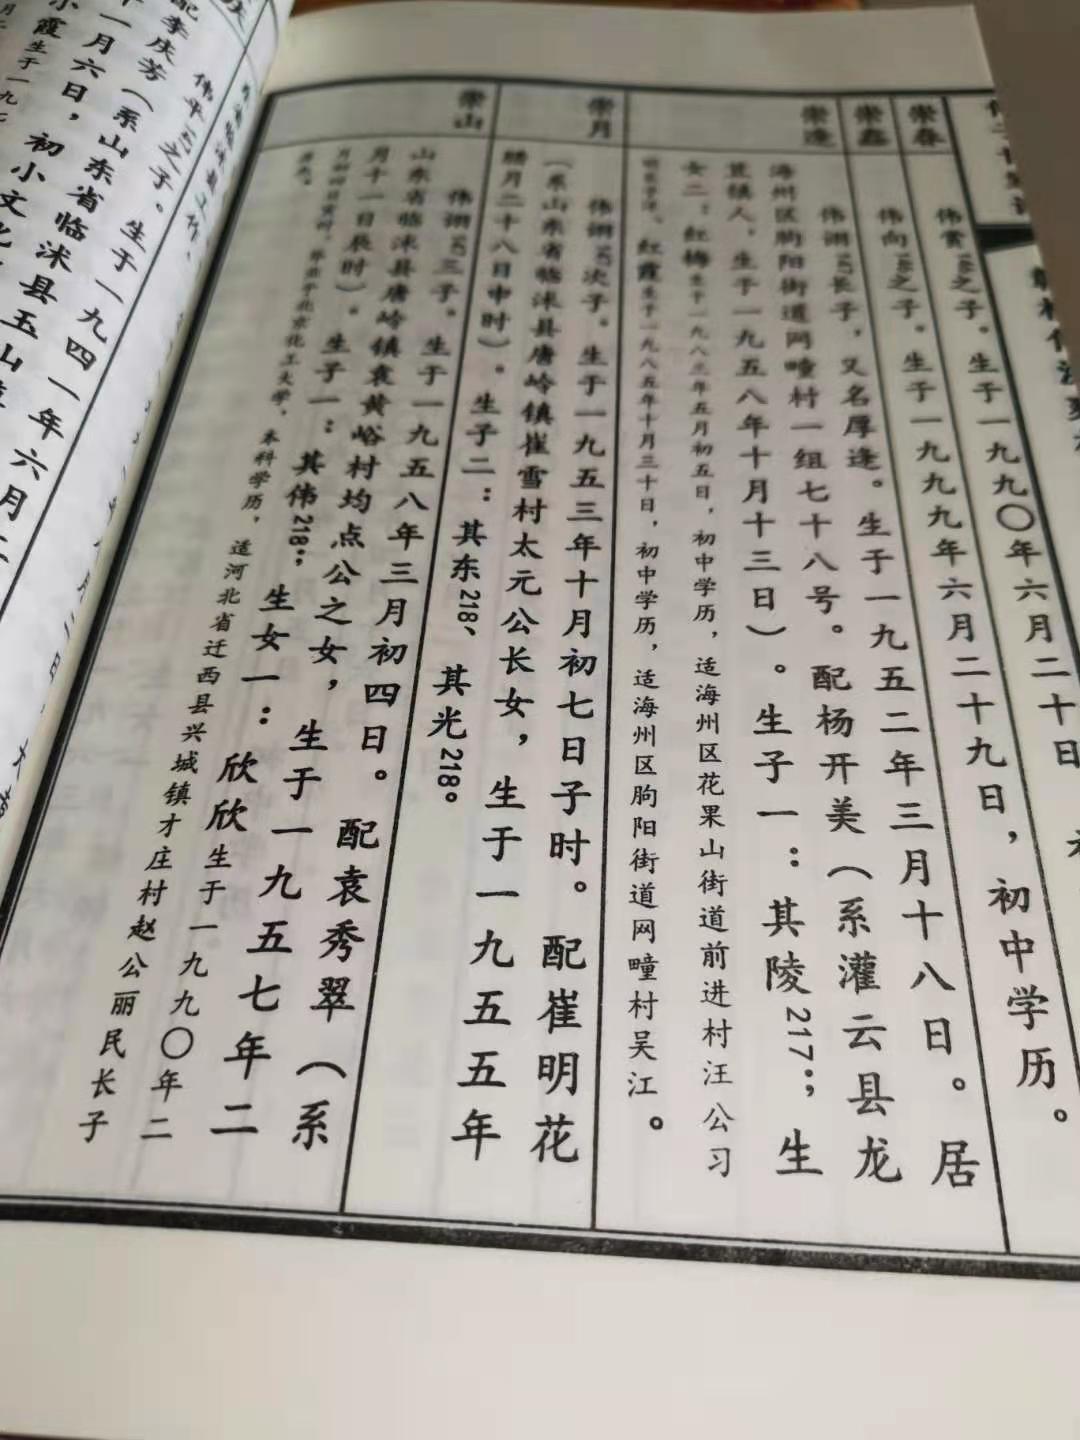 崇春
伟赏168之子。生于一九九〇年六月二十日
崇鑫
伟向168之子。生于一九九九年六月二十九日，初中学历。
崇逢
伟诩167长子，又名厚逢。生于一九五二年三月十八日。居
海州区朐阳街道网疃村一组七十八号。配杨开美（系灌云县龙
苴镇人，生于一九五八年十月十三日）。生子一：其陵217；生
女二：红梅生于一九八三年五月初五日，初中学历，适海州区花果山街道前进村汪公习
红霞生于一九八五年十月三十日，初中学历，适海州区朐阳街道网疃村吴江。
崇月
伟诩167次子。生于一九五三年十月初七日子时。配崔明花
（系山东省临沭县唐岭镇崔雪村太元公长女，生于一九五五年
腊月二十八日申时）。生子二：其东218、其光218。
崇山
伟诩167三子。生于一九五八年三月初四日。配袁秀翠（系
山东省临沭县唐岭镇袁黄峪村均点公之女，生于一九五七年二
月十一日辰时）。生子一：其伟218；生女一：欣欣生于一九九〇年二
毕业于北京化工大学，本科学历，适河北省迁西县兴城镇才庄村赵公丽民长子
伟平
之子。生于一九四一年六月二
配李庆芳（系山东省临沭县玉山
十一月六日，初小文化
小霞生于一九七